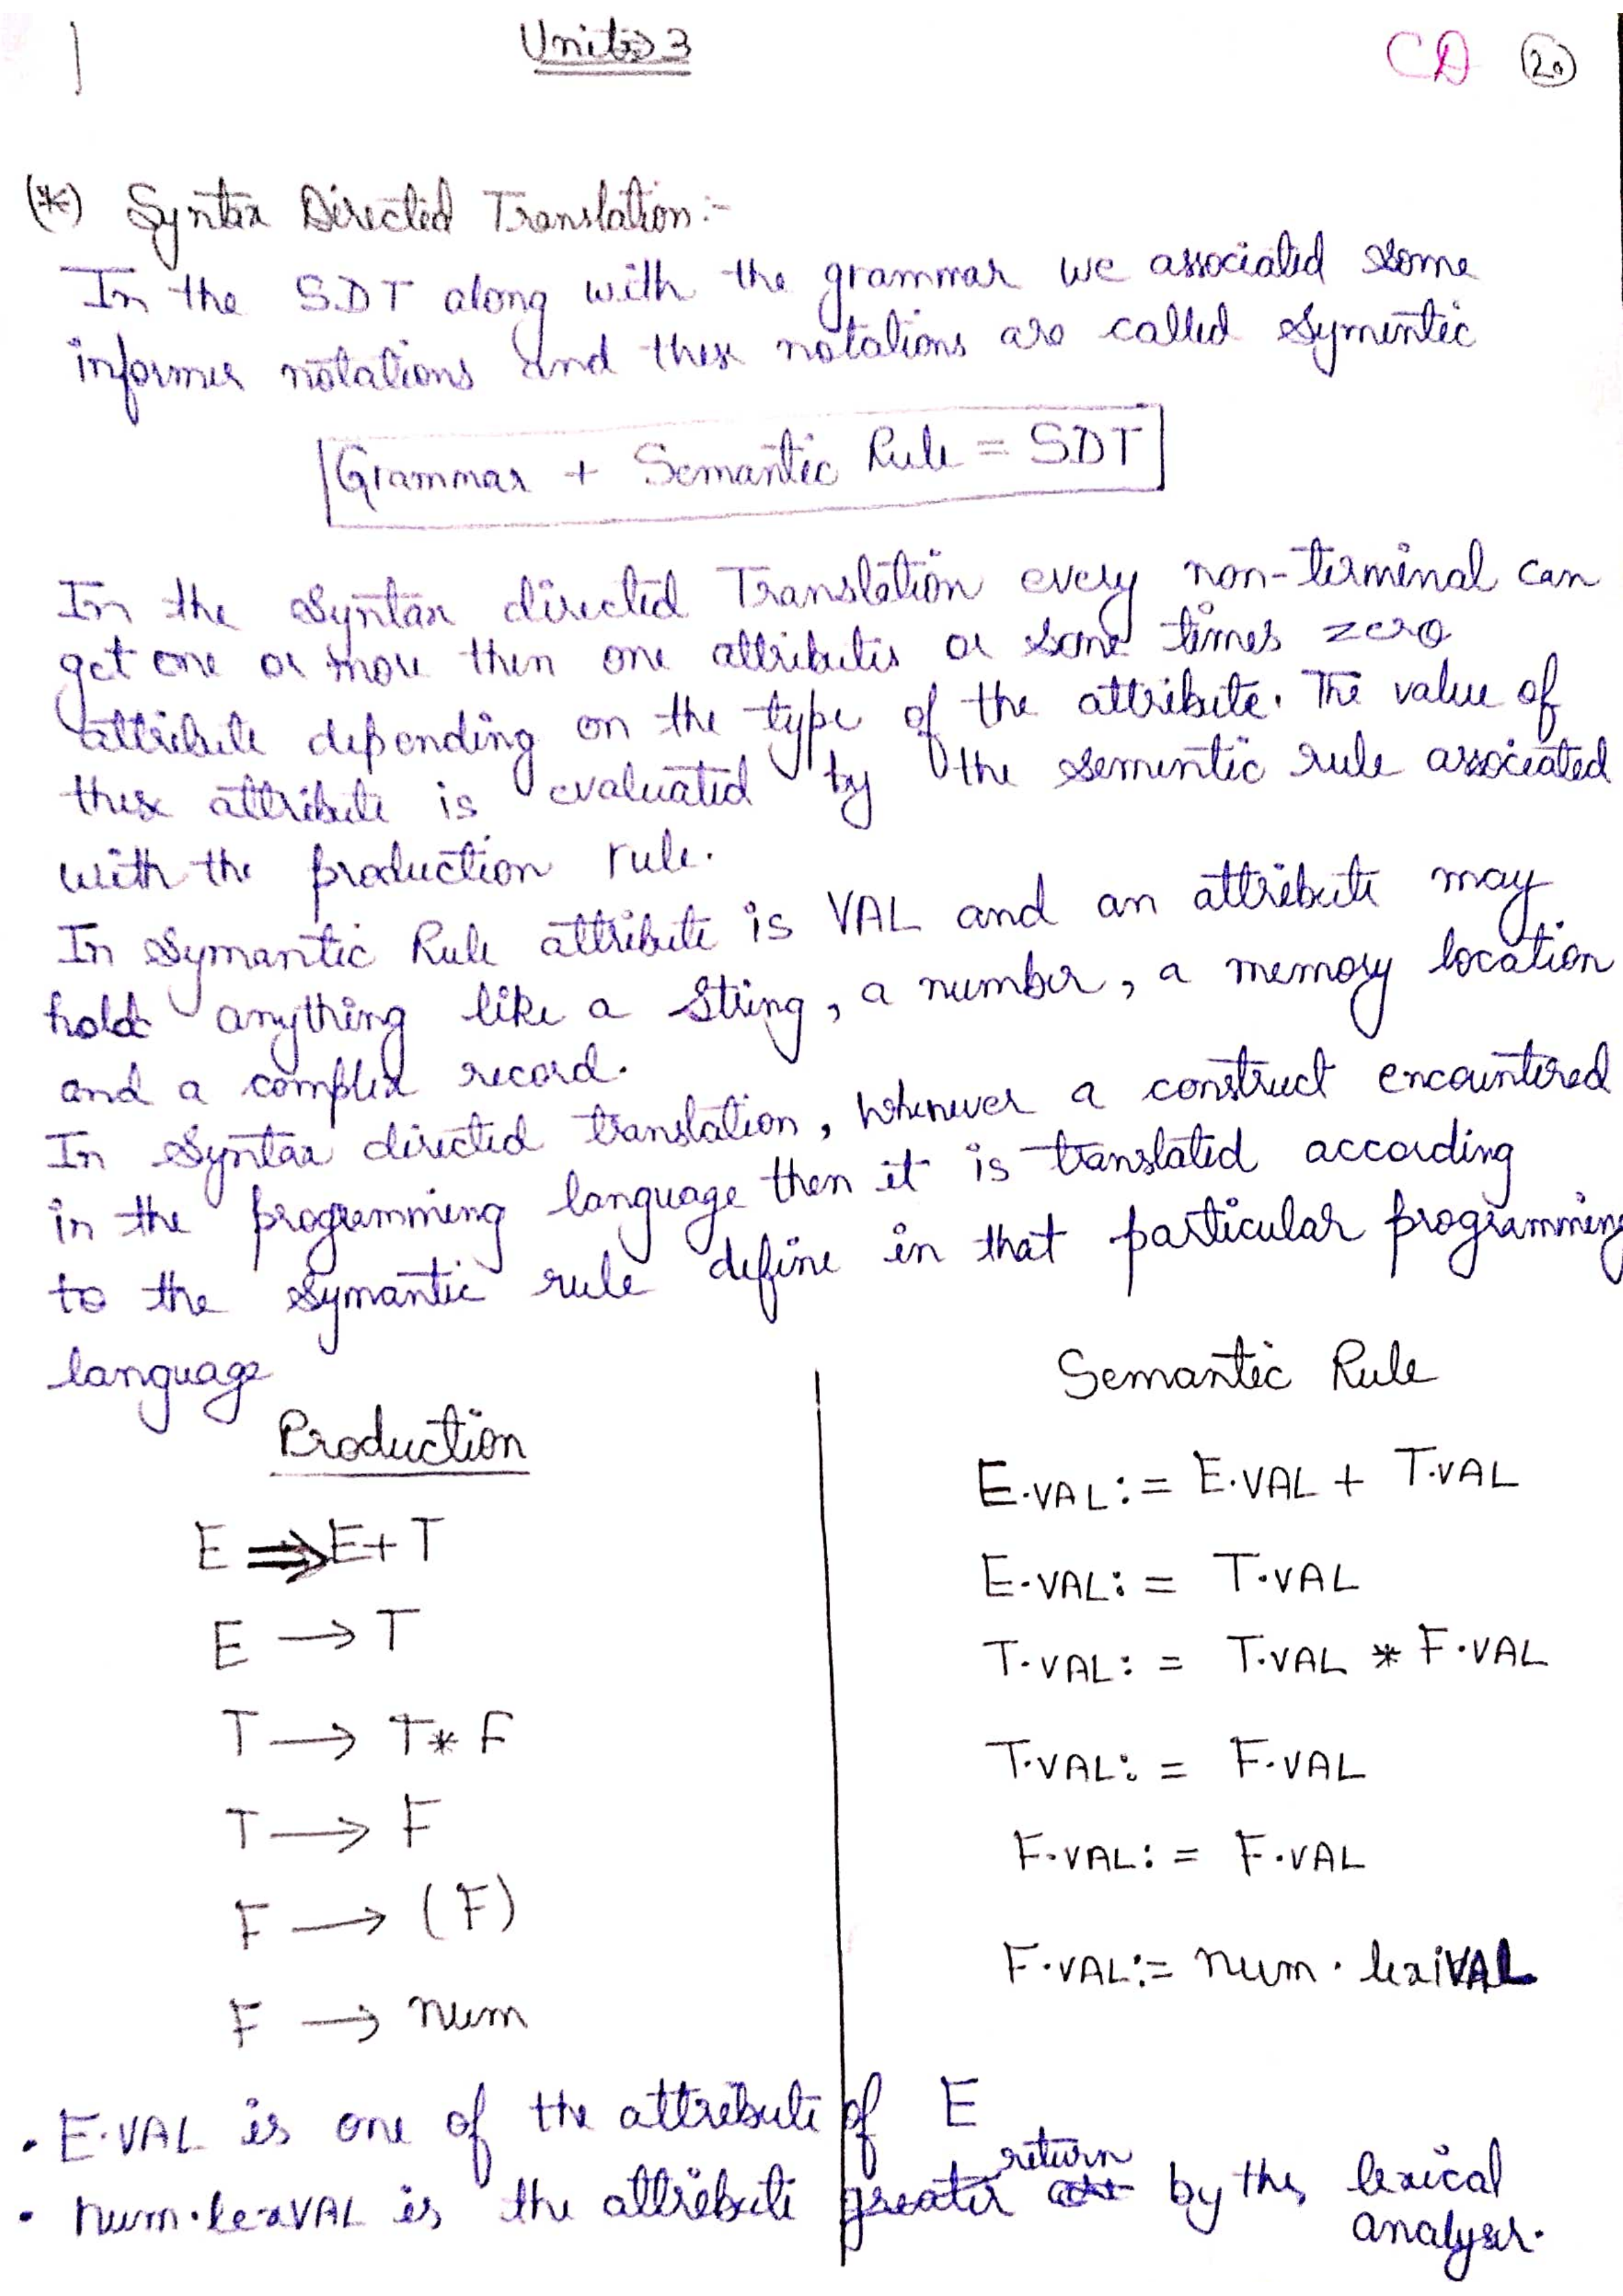 Unit 3
CD 20
(*) Syntax Directed Translation:-
In the SDT along with the grammar we associated some
informer notations and these notations are called Symentic
Grammar + Semantic Rule = SDT
In the Syntax directed Translation every non-terminal can
get one or more then one attributes or some times zero
attribute depending on the type of the attribute. The value of
these attribute is evaluated by the sementic rule associated
with the production rule.
In Symantic Rule attribute is VAL and an attribute may
hold anything like a String, a number, a memory location
and a complex record.
In Syntax directed translation, whenever a construct encountered
in the programming language then it is translated according
to the symantic rule define in that particular programming
language
Production
Semantic Rule
E ⇒ E+T
E.VAL := E.VAL + T.VAL
E → T
E.VAL := T.VAL
T → T * F
T.VAL := T.VAL * F.VAL
T → F
T.VAL := F.VAL
F → (F)
F.VAL := F.VAL
F → num
F.VAL := num . lexiVAL
• E.VAL is one of the attribute of E
• num.lexVAL is the attribute greater return by the lexical
analyser.